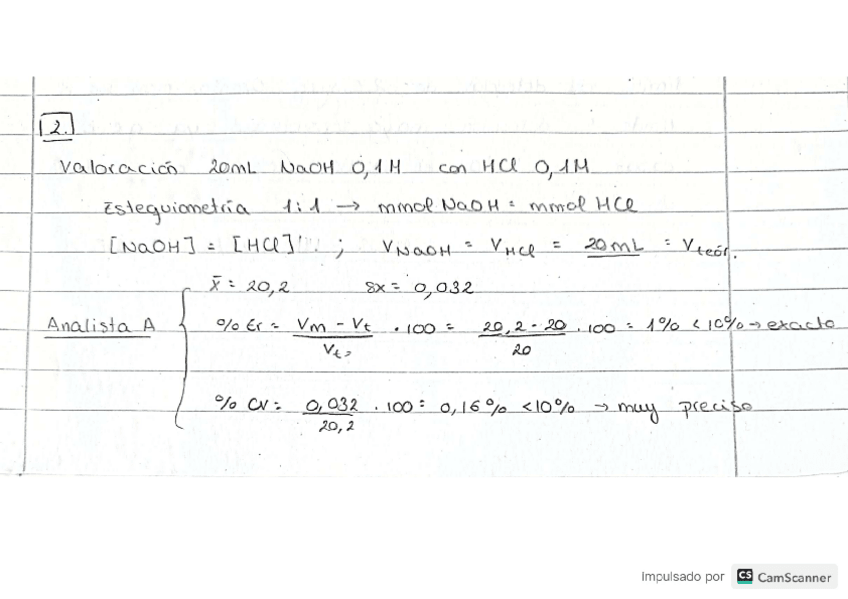 2.
Valoración 20mL NaOH 0,1M con HCl 0,1M
Estequiometría 1:1 → mmol NaOH = mmol HCl
[NaOH] = [HCl] ; V NaOH = V HCl = 20mL = Vteór.
x̄ = 20,2 sx = 0,032
Analista A % Er = (Vm - Vt) / Vt · 100 = (20,2 - 20) / 20 · 100 = 1% < 10% → exacto
% CV = 0,032 / 20,2 · 100 = 0,16% < 10% → muy preciso
Impulsado por CS CamScanner